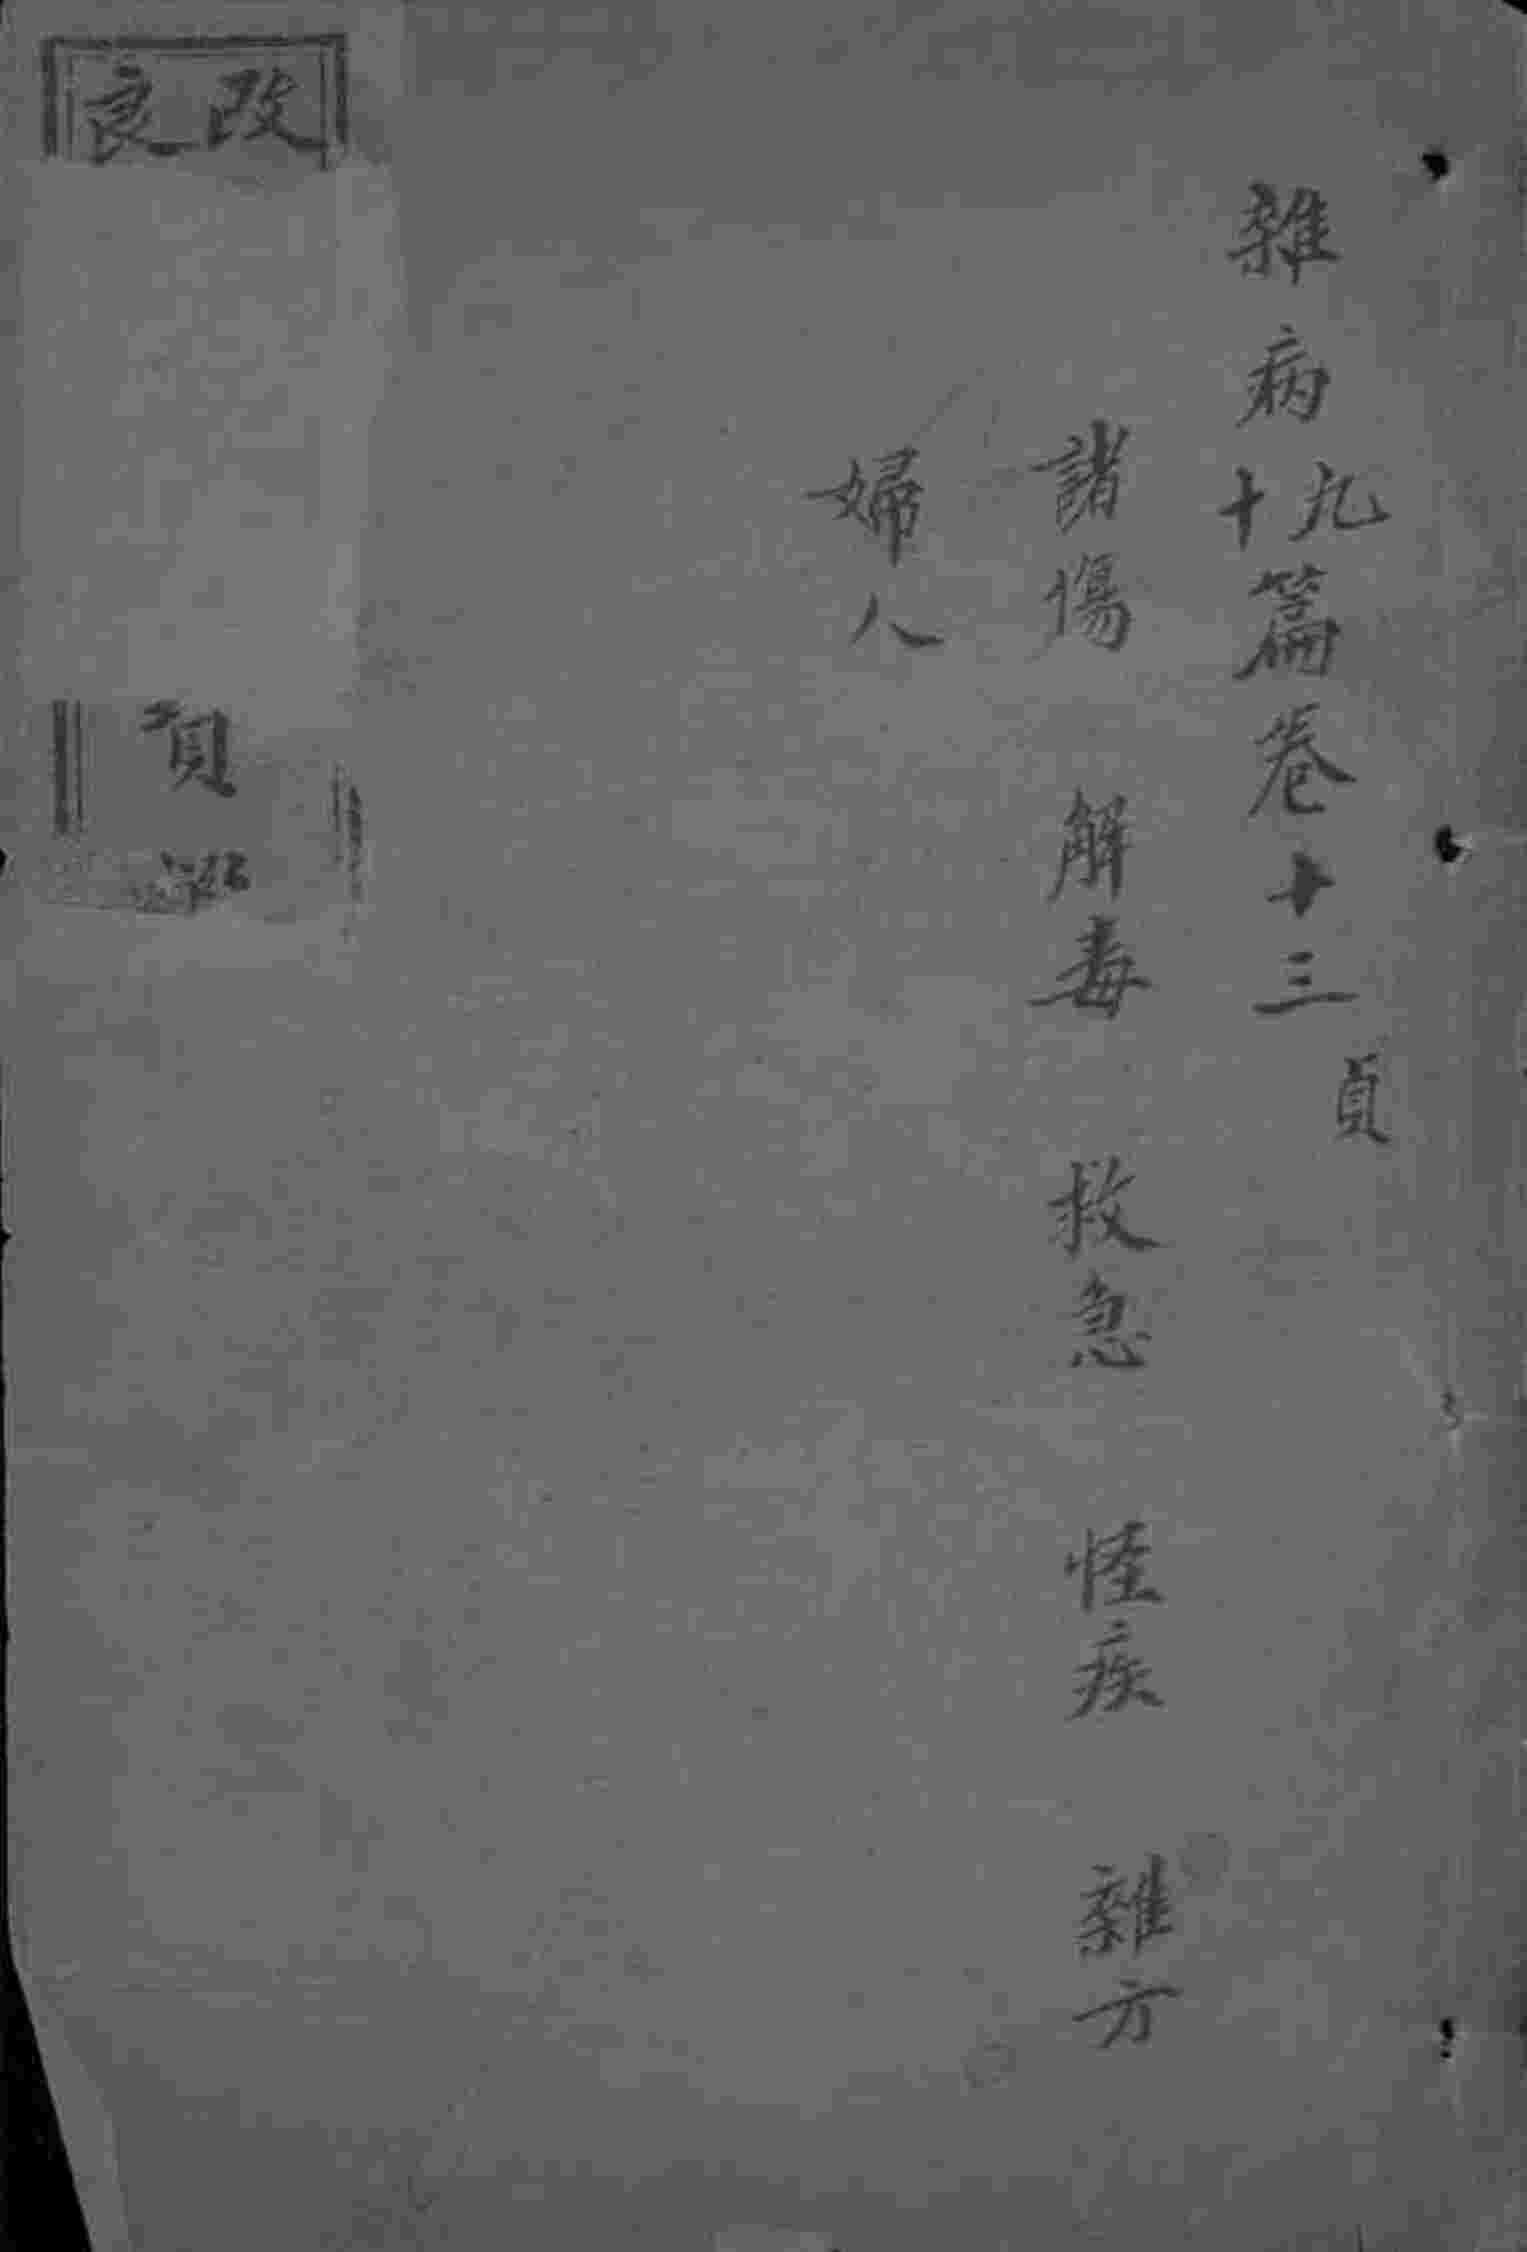 雜病九十篇卷十三
貞
諸傷 解毒 救急 怪疾 雜方
婦人
改良
貞